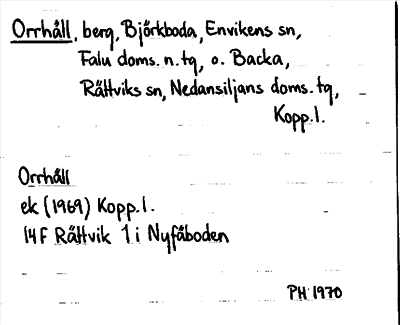 Orrhåll, berg, Björkboda, Envikens sn,
Falu doms. n. tg, o. Backa,
Rättviks sn, Nedansiljans doms. tg,
Kopp. l.
Orrhåll
ek (1969) Kopp. l.
14F Rättvik 1 i Nyfäboden
PH 1970